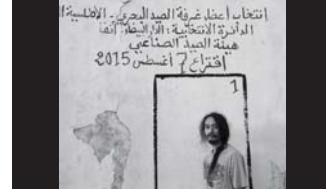 انتخاب أعضاء غرفة الصيد البحري - الأطلسية ا
الدائرة الانتخابية: الدار البيضاء - آنفا
هيئة الصيد الصناعي
اقتراع 7 أغسطس 2015
1